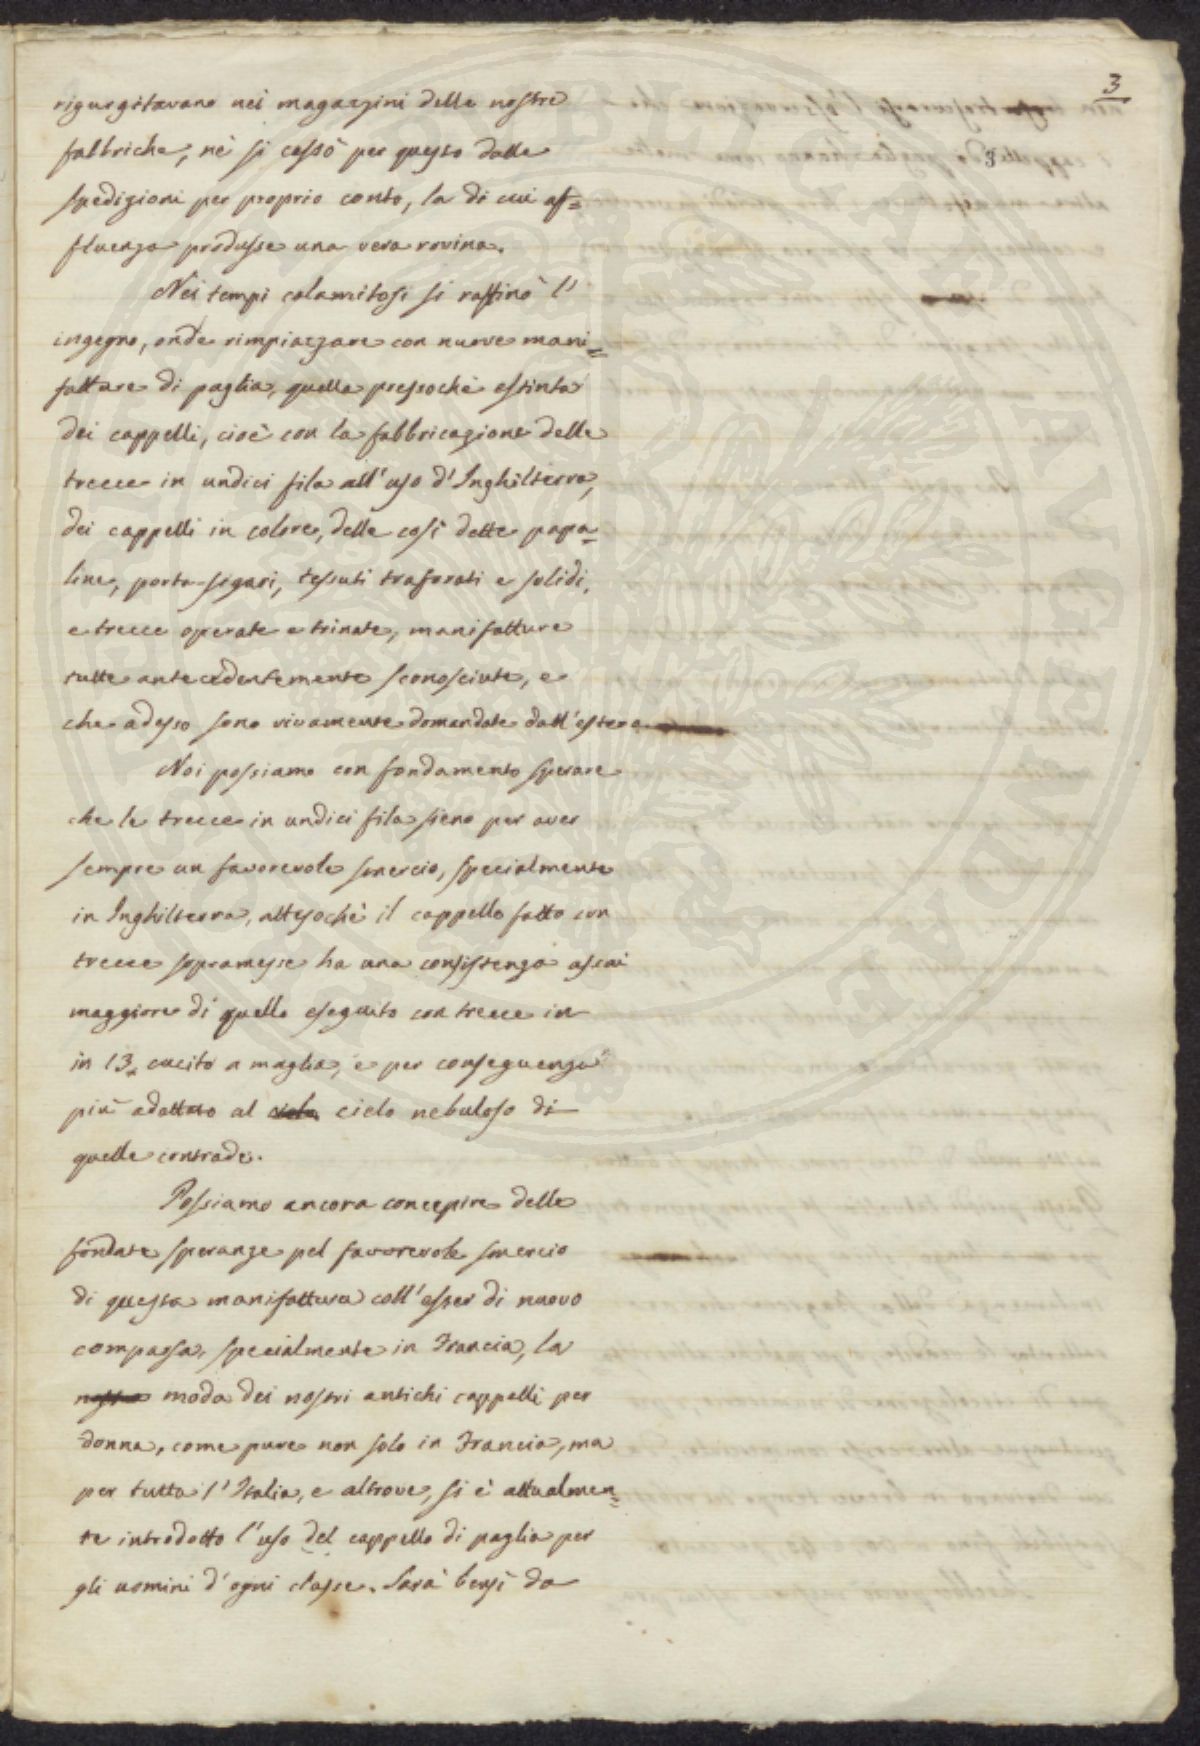 3
3
rigurgitavano nei magazzini delle nostre
fabbriche, nè si cessò per questo dalle
spedizioni per proprio conto, la di cui af=
fluenza produsse una vera rovina.
Nei tempi calamitosi si raffinò l'
ingegno, onde rimpiazzare con nuove mani=
fatture di paglia, quella pressochè estinta
dei cappelli, cioè con la fabbricazione delle
trecce in undici fila all'uso d'Inghilterra,
dei cappelli in colore, delle così dette papa=
line, porta-sigari, tessuti traforati e solidi,
e trecce operate e trinate, manifatture
tutte antecedentemente sconosciute, e
che adesso sono vivamente domandate dall'estero
Noi possiamo con fondamento sperare
che le trecce in undici fila sieno per aver
sempre un favorevole smercio, specialmente
in Inghilterra, attesochè il cappello fatto con
trecce soprамesse ha una consistenza assai
maggiore di quello eseguito con trecce in
in 13, cucito a maglia, e per conseguenza
più adattato al cielo cielo nebuloso di
quelle contrade.
Possiamo ancora concepire delle
fondate speranze pel favorevole smercio
di questa manifattura coll'esser di nuovo
comparsa, specialmente in Francia, la
nostra moda dei nostri antichi cappelli per
donna, come pure non solo in Francia, ma
per tutta l'Italia, e altrove, si è attualmen=
te introdotto l'uso del cappello di paglia per
gli uomini d'ogni classe. Sarà bensì da